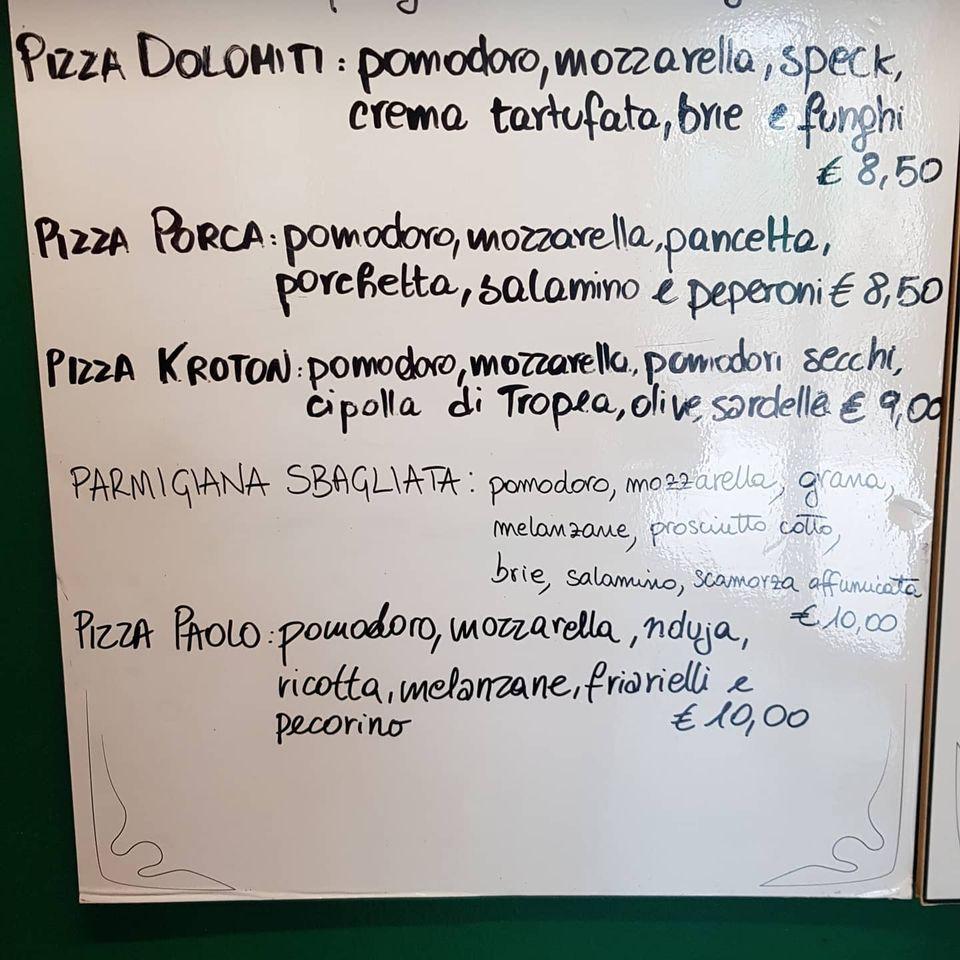 PIZZA DOLOMITI: pomodoro, mozzarella, speck,
crema tartufata, brie e funghi
€ 8,50
PIZZA PORCA: pomodoro, mozzarella, pancetta,
porchetta, salamino e peperoni € 8,50
PIZZA KROTON: pomodoro, mozzarella, pomodori secchi,
cipolla di Tropea, olive, sardella € 9,00
PARMIGIANA SBAGLIATA: pomodoro, mozzarella, grana,
melanzane, prosciutto cotto,
brie, salamino, scamorza affumicata
€ 10,00
PIZZA PAOLO: pomodoro, mozzarella, nduja,
ricotta, melanzane, friarielli e
pecorino € 10,00